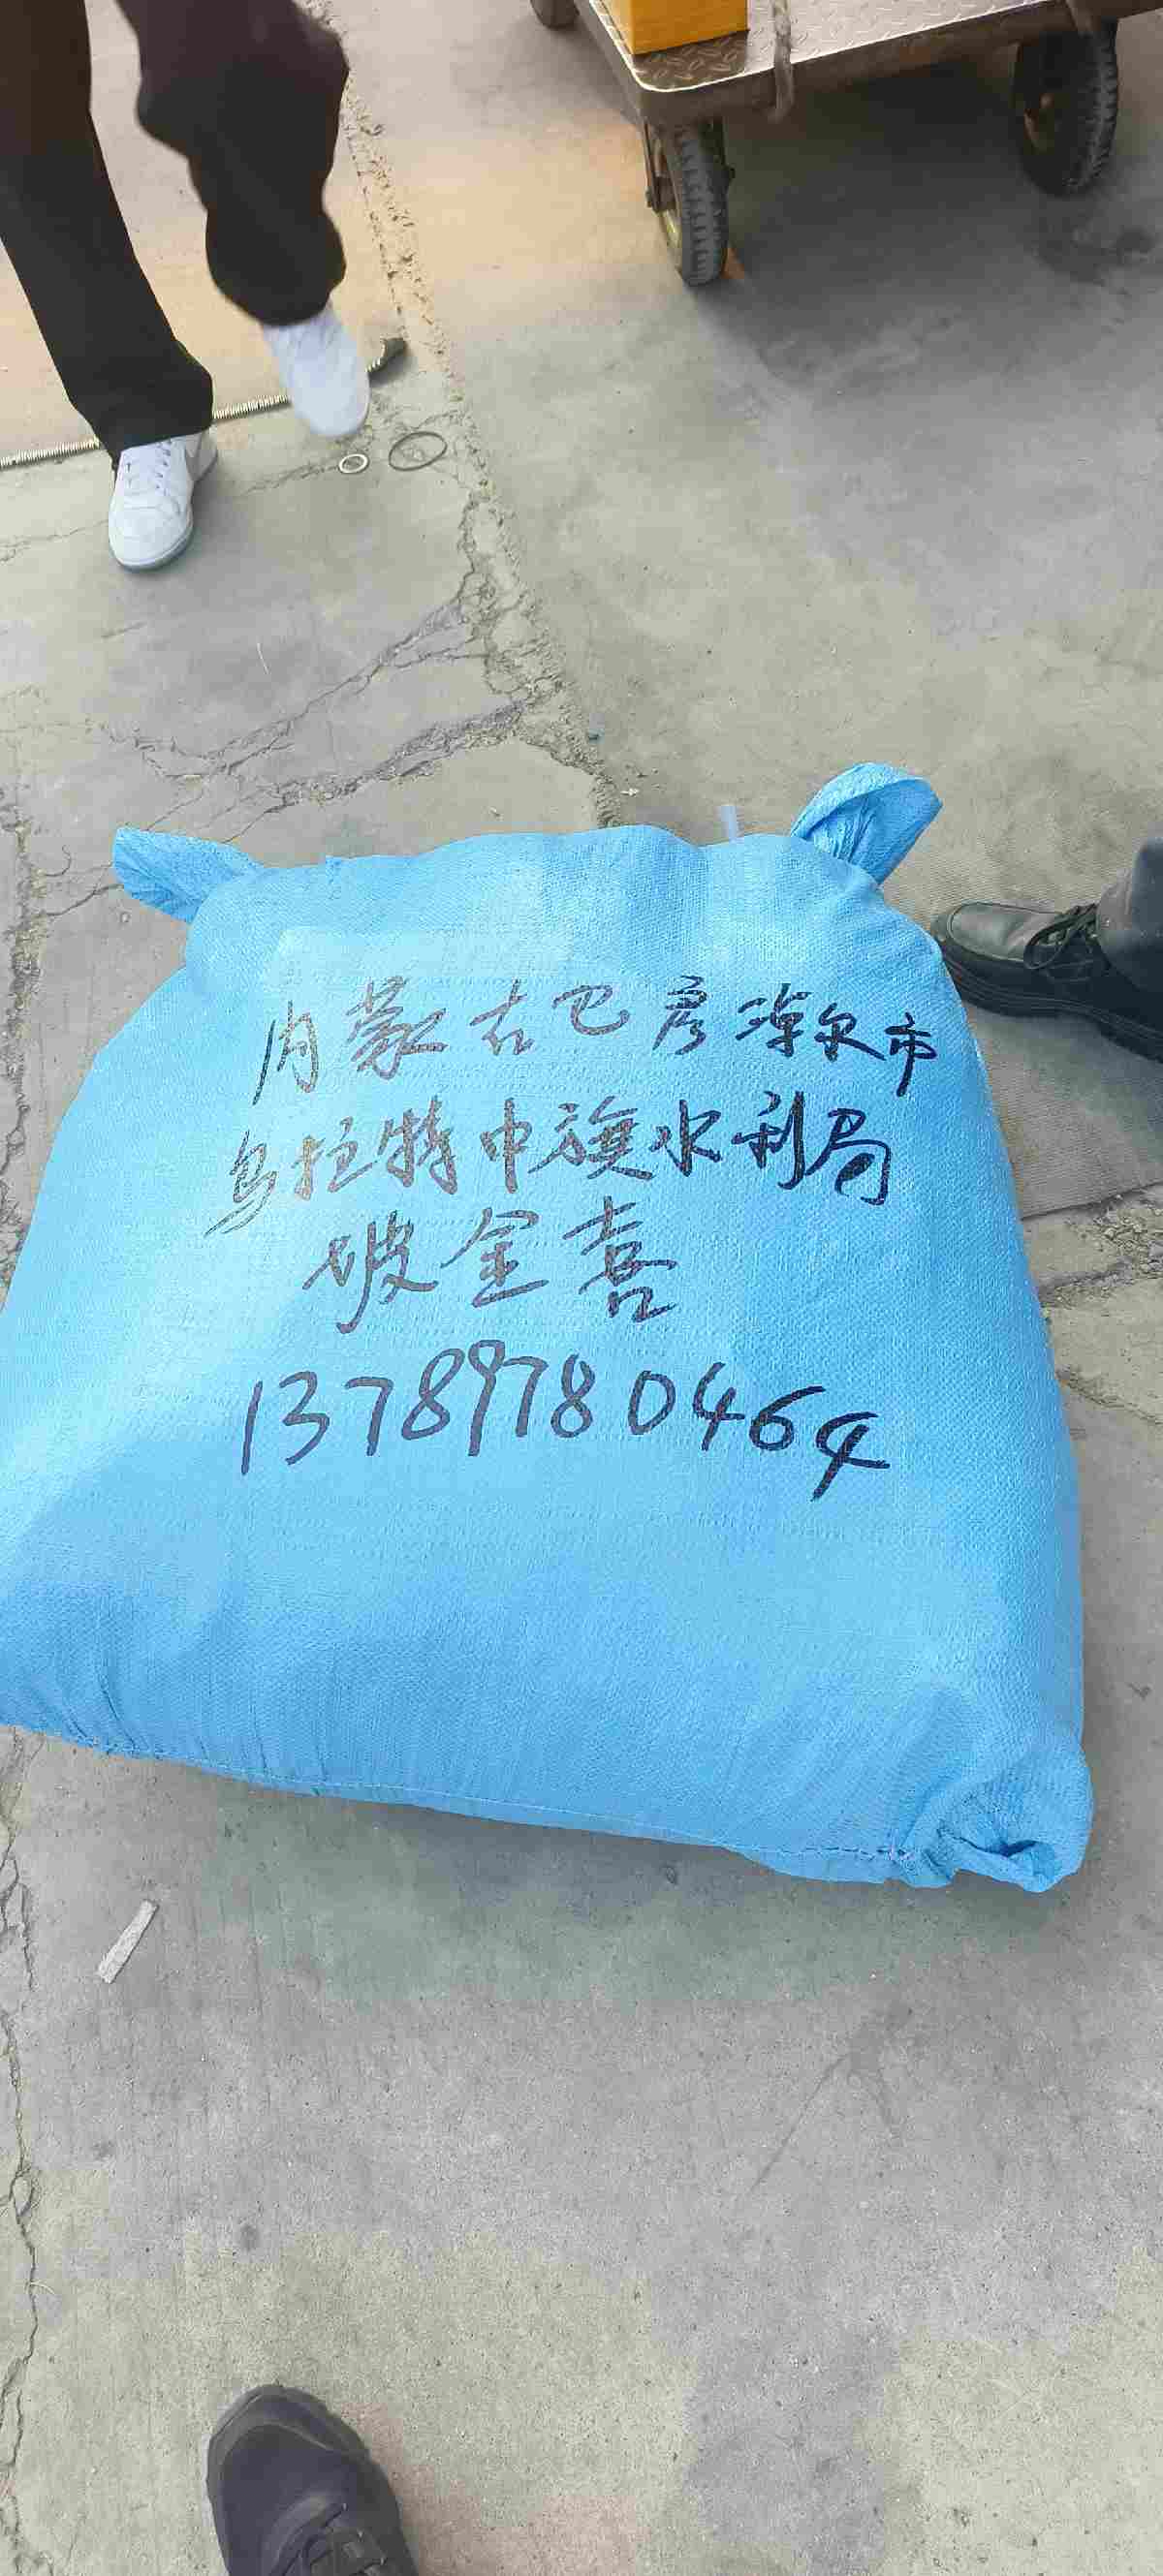 内蒙古巴彦淖尔市
乌拉特中旗水利局
坡金喜
13789780464